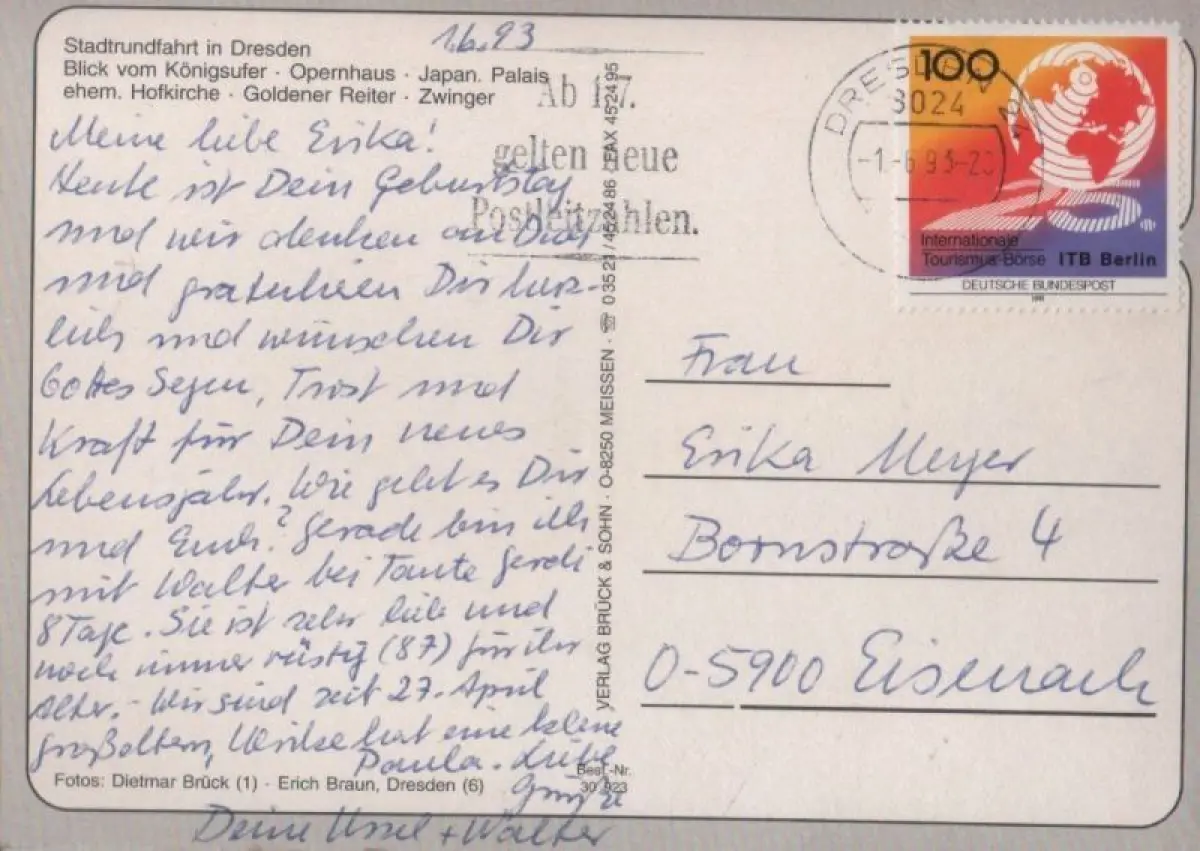 Stadtrundfahrt in Dresden
Blick vom Königsufer · Opernhaus · Japan. Palais
ehem. Hofkirche · Goldener Reiter · Zwinger
1.6.93
Meine liebe Erika!
Heute ist Dein Geburtstag
und wir denken an Dich
und gratulieren Dir herz-
lich und wünschen Dir
Gottes Segen, Trost und
Kraft für Dein neues
Lebensjahr. Wie geht es Dir
und Euch? Gerade bin ich
mit Walter bei Tante Gerdi
8 Tage. Sie ist sehr lieb und
noch immer rüstig (87) für ihr
Alter. - Wir sind seit 27. April
Großeltern, Ulrike hat eine kleine
Paula. Liebe
Grüße
Deine Ursel + Walter
Fotos: Dietmar Brück (1) · Erich Braun, Dresden (6)
Best.-Nr.
30 923
VERLAG BRÜCK & SOHN · O-8250 MEISSEN · ☏ 0 35 21 / 45 24 86 · FAX 45 24 95
Ab 1.7.
gelten neue
Postleitzahlen.
DRESDEN
8024
-1.-6.93-20
100
Internationale
Tourismus-Börse ITB Berlin
DEUTSCHE BUNDESPOST
Frau
Erika Meyer
Bornstraße 4
O-5900 Eisenach